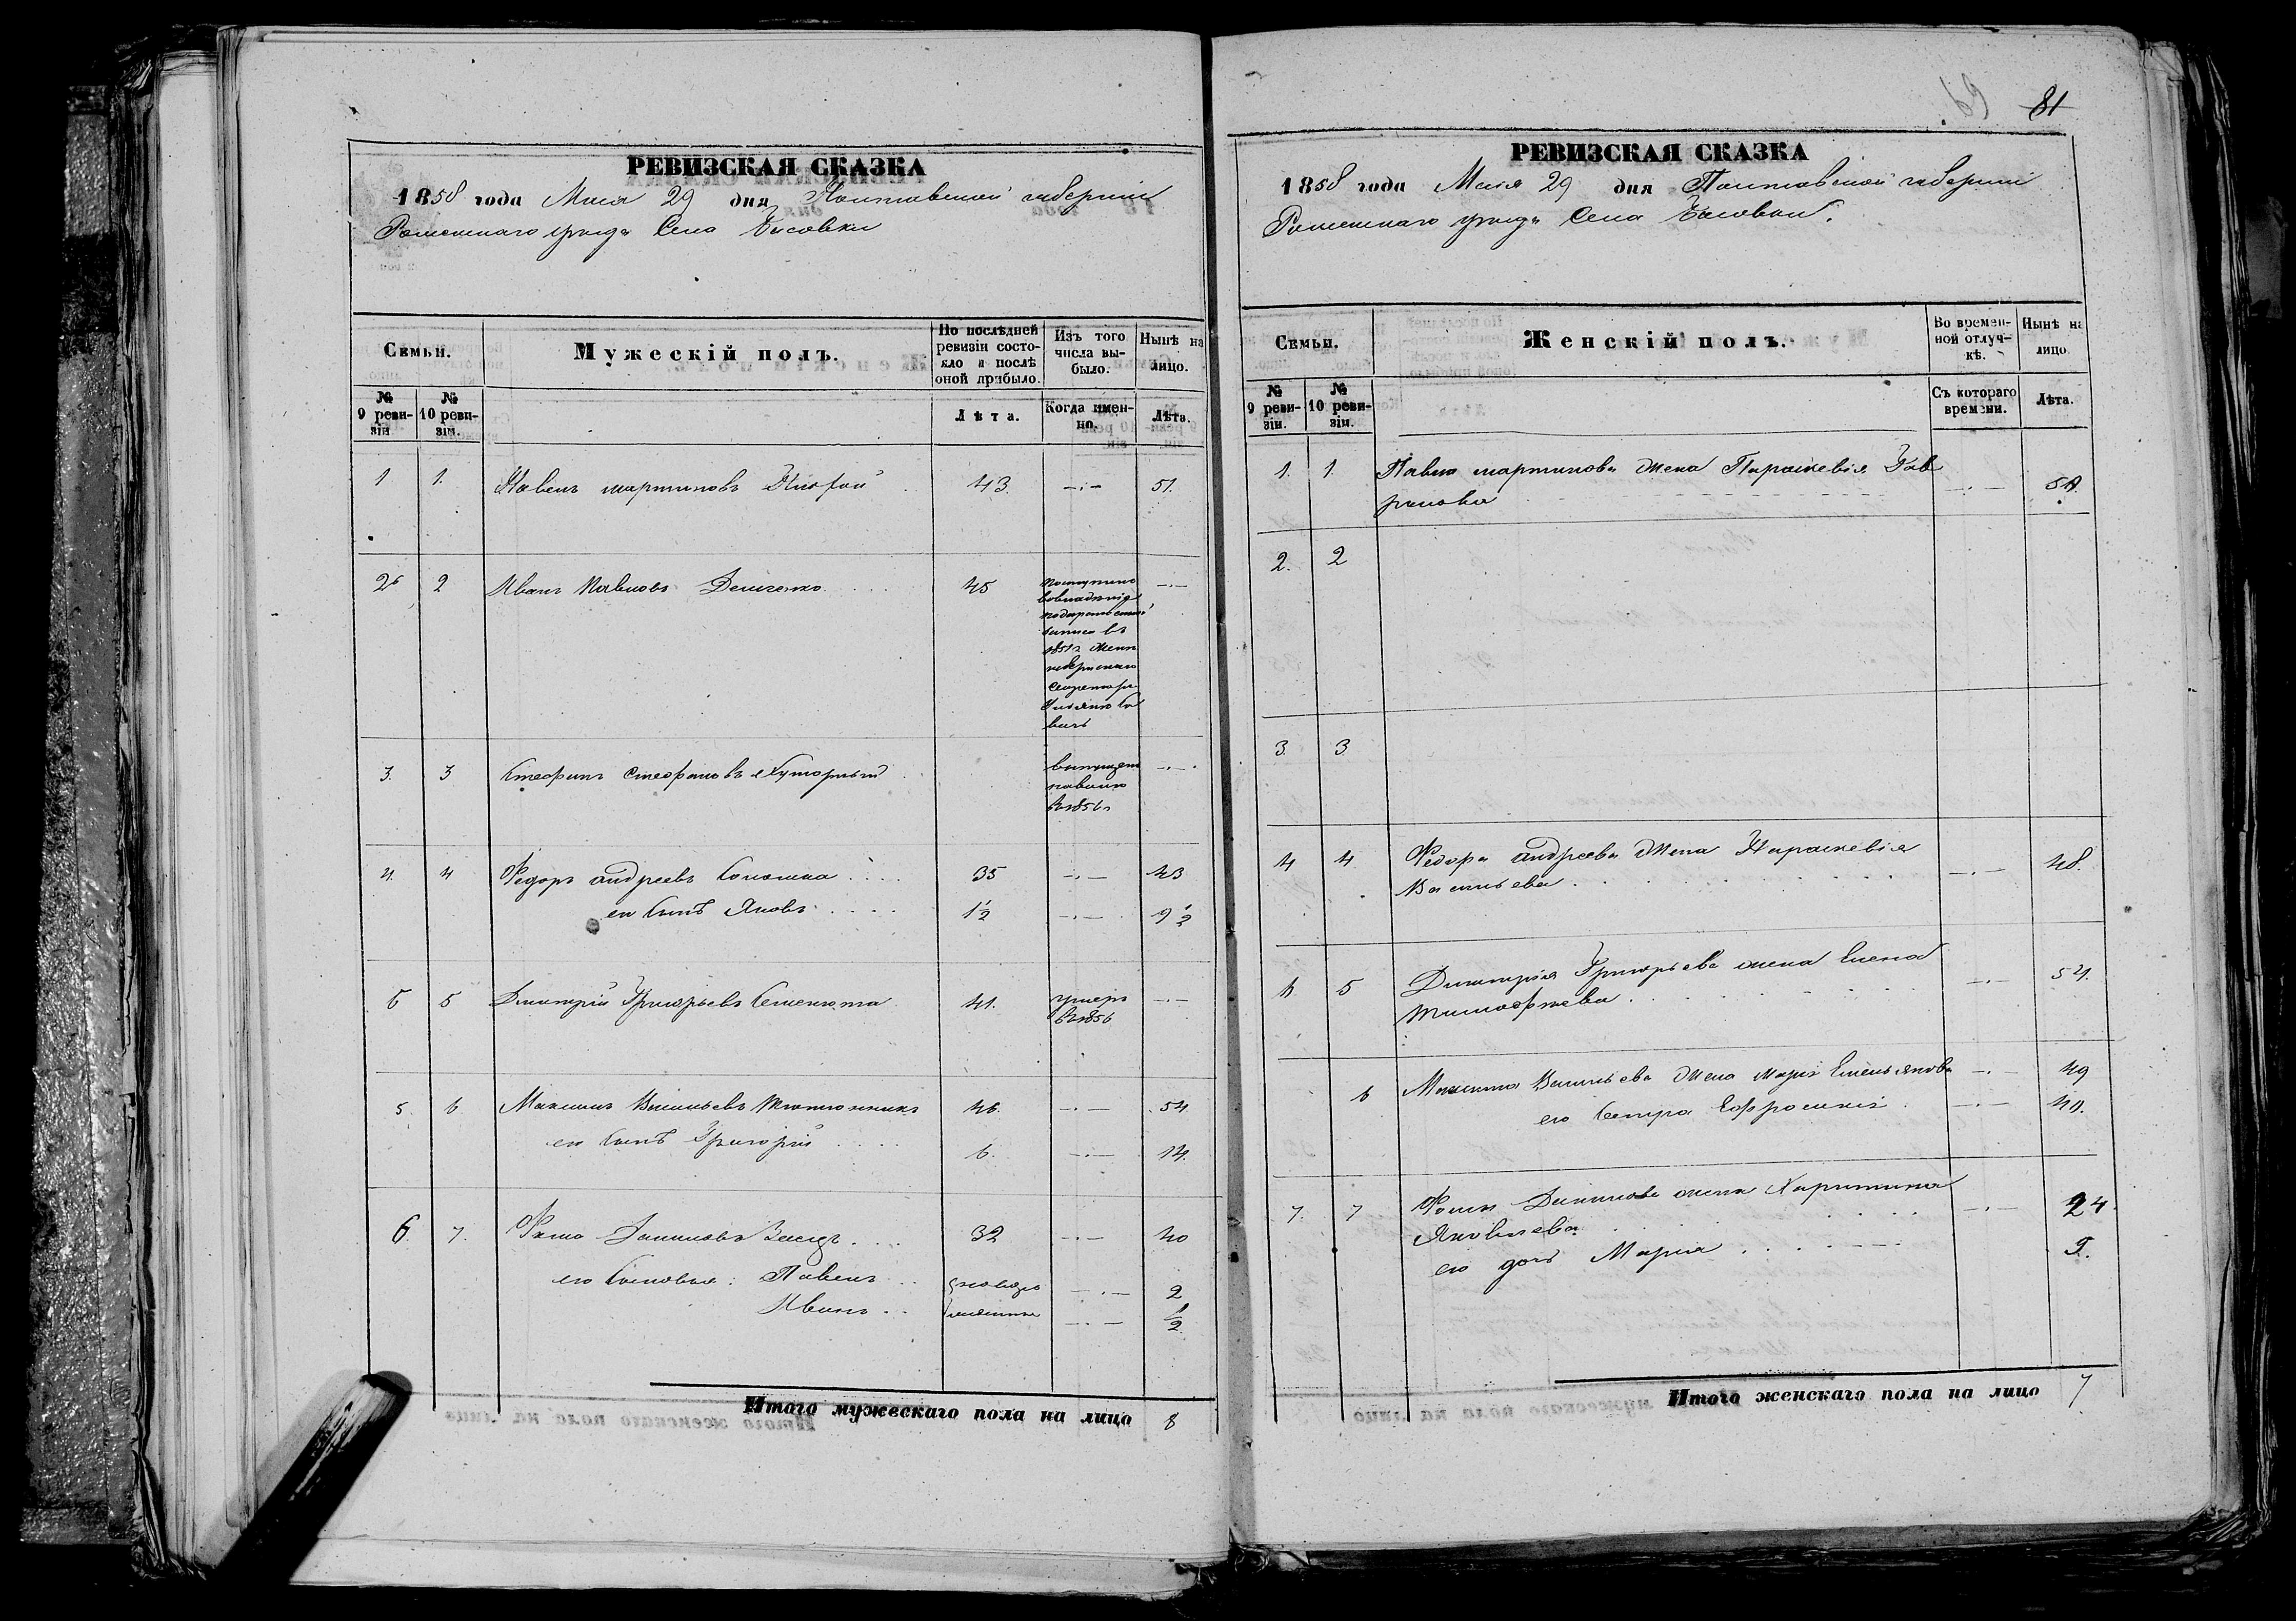 81
РЕВИЗСКАЯ СКАЗКА
1858 года Мая 29 дня Полтавской губерніи
Роменскаго уѣзда Села Бѣсовки
Семьи.
Мужескій полъ.
По послѣдней ревизіи состояло и послѣ оной прибыло.
Изъ того числа выбыло.
Нынѣ на лицо.
№ 9 ревизіи
№ 10 ревизіи.
Лѣта.
Когда именно.
Лѣта.
1 1. Павелъ мартиновъ 43. 51.
2 2 Иванъ Павловъ Демченко 45
поступилъ
во владѣніе
по дарственной
записи въ
1851 г. жены
губернскаго
Секретаря
3. 3 Стефанъ Стефановъ Хуторный
выпущенъ
на волю
въ 1856 г
4. 4 Федоръ андреевъ 35 43
его сынъ Яковъ 1½ 9½
5 5 Димитрій Григорьевъ Семенюта 41. умеръ
въ 1856
5. 6. Максимъ Васильевъ Тютюнникъ 46. 54
его сынъ Григорій 6. 14.
6. 7. Фома Даниловъ 32 40
его сыновья: Павелъ 2
Иванъ ½
новорожденные
Итого мужескаго пола на лицо 8
РЕВИЗСКАЯ СКАЗКА
1858 года Мая 29 дня Полтавской губерніи
Роменскаго уѣзда Села Бѣсовки.
Семьи.
Женскій полъ.
Во временной отлучкѣ.
Нынѣ на лицо.
№ 9 ревизіи.
№ 10 ревизіи.
Съ котораго времени.
Лѣта.
1. 1. Павла мартинова жена Параскевія Гав
рилова
2. 2
3. 3
4 4 Федора андреева жена Параскевія 48.
Васильева
5 Димитрія Григорьева жена Елена 54.
тимофеева
6 Максима Васильева жена Марія Емельянова 49
его сестра Ефросинія
7. 7 Фомы Данилова жена Харитина 24.
Яковлева
его дочь Марія
Итого женскаго пола на лицо 7